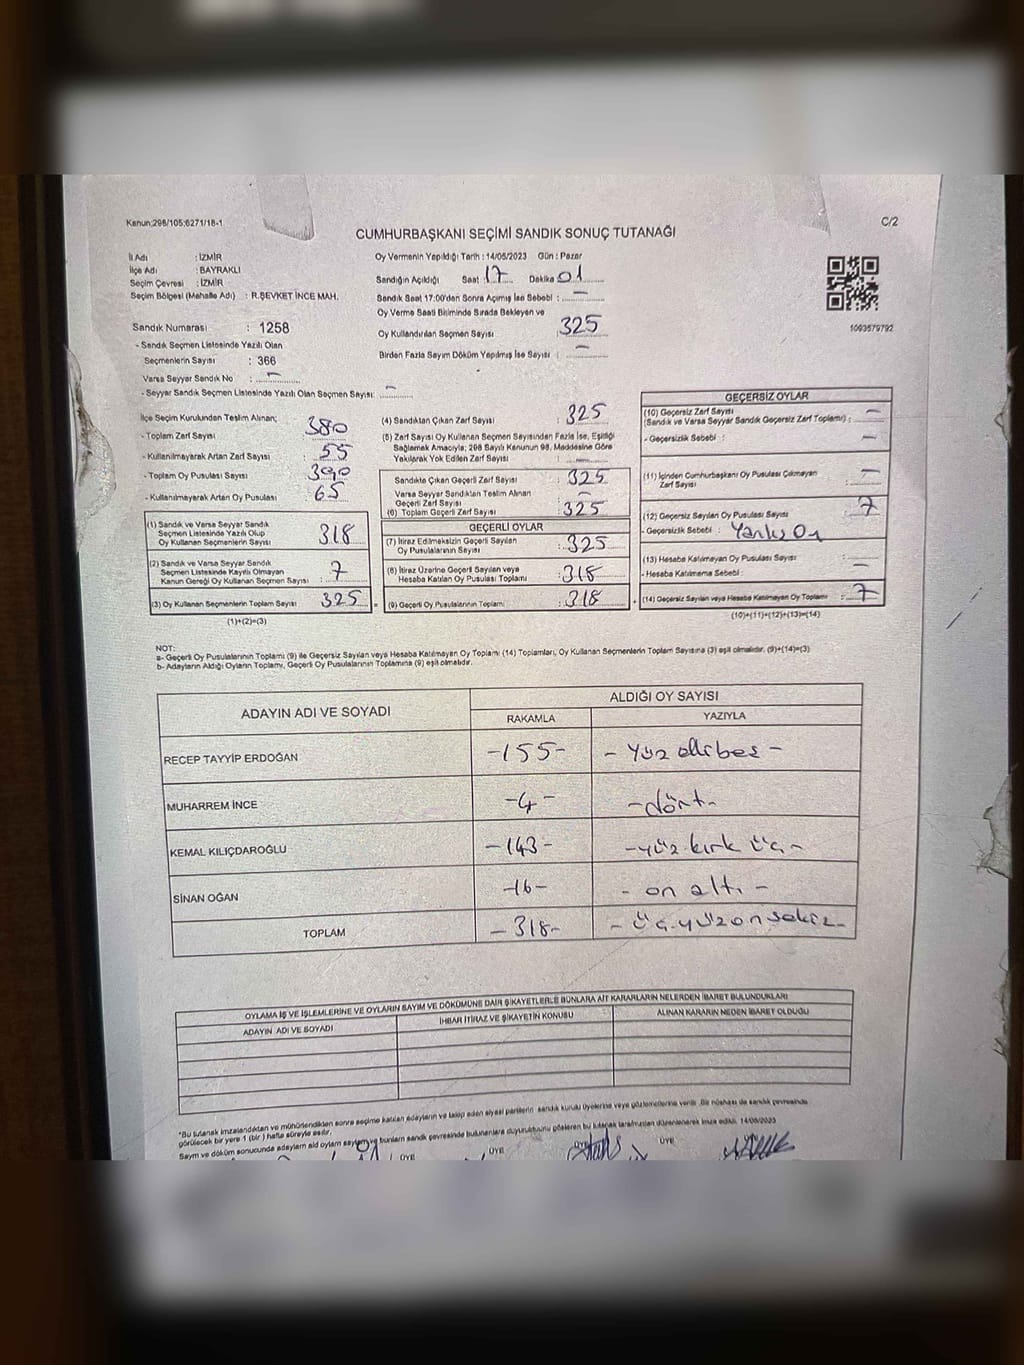 Kanun;298/105;6271/18-1
C/2
CUMHURBAŞKANI SEÇİMİ SANDIK SONUÇ TUTANAĞI
İl Adı : İZMİR
İlçe Adı : BAYRAKLI
Seçim Çevresi : İZMİR
Seçim Bölgesi (Mahalle Adı) : R.ŞEVKET İNCE MAH.
Oy Vermenin Yapıldığı Tarih : 14/05/2023 Gün : Pazar
Sandığın Açıldığı Saat 17 Dakika 01
Sandık Saat 17:00'den Sonra Açımış İse Sebebi : –
Oy Verme Saati Bitiminde Sırada Bekleyen ve
Oy Kullandırılan Seçmen Sayısı 325
Birden Fazla Sayım Döküm Yapılmış İse Sayısı : –
1093579792
Sandık Numarası : 1258
- Sandık Seçmen Listesinde Yazılı Olan
Seçmenlerin Sayısı : 366
Varsa Seyyar Sandık No : –
- Seyyar Sandık Seçmen Listesinde Yazılı Olan Seçmen Sayısı: –
İlçe Seçim Kurulundan Teslim Alınan;
- Toplam Zarf Sayısı : 380
- Kullanılmayarak Artan Zarf Sayısı : 55
- Toplam Oy Pusulası Sayısı : 390
- Kullanılmayarak Artan Oy Pusulası : 65
(1) Sandık ve Varsa Seyyar Sandık
Seçmen Listesinde Yazılı Olup
Oy Kullanan Seçmenlerin Sayısı : 318
(2) Sandık ve Varsa Seyyar Sandık
Seçmen Listesinde Kayıtlı Olmayan
Kanun Gereği Oy Kullanan Seçmen Sayısı : 7
(3) Oy Kullanan Seçmenlerin Toplam Sayısı : 325
(1)+(2)=(3)
(4) Sandıktan Çıkan Zarf Sayısı : 325
(5) Zarf Sayısı Oy Kullanan Seçmen Sayısından Fazla İse, Eşitliği
Sağlamak Amacıyla; 298 Sayılı Kanunun 98. Maddesine Göre
Yakılarak Yok Edilen Zarf Sayısı : –
Sandıkta Çıkan Geçerli Zarf Sayısı : 325
Varsa Seyyar Sandıktan Teslim Alınan
Geçerli Zarf Sayısı : –
(6) Toplam Geçerli Zarf Sayısı : 325
GEÇERLİ OYLAR
(7) İtiraz Edilmeksizin Geçerli Sayılan
Oy Pusulalarının Sayısı : 325
(8) İtiraz Üzerine Geçerli Sayılan veya
Hesaba Katılan Oy Pusulası Toplamı : 318
(9) Geçerli Oy Pusulalarının Toplamı : 318
GEÇERSİZ OYLAR
(10) Geçersiz Zarf Sayısı
(Sandık ve Varsa Seyyar Sandık Geçersiz Zarf Toplamı) : –
- Geçersizlik Sebebi : –
(11) İçinden Cumhurbaşkanı Oy Pusulası Çıkmayan
Zarf Sayısı : –
(12) Geçersiz Sayılan Oy Pusulası Sayısı : 7
- Geçersizlik Sebebi : Yanlış Oy
(13) Hesaba Katılmayan Oy Pusulası Sayısı :
- Hesaba Katılmama Sebebi : –
(14) Geçersiz Sayılan veya Hesaba Katılmayan Oy Toplamı : 7
(10)+(11)+(12)+(13)=(14)
NOT:
a- Geçerli Oy Pusulalarının Toplamı (9) ile Geçersiz Sayılan veya Hesaba Katılmayan Oy Toplamı (14) Toplamları, Oy Kullanan Seçmenlerin Toplam Sayısına (3) eşit olmalıdır. (9)+(14)=(3)
b- Adayların Aldığı Oyların Toplamı, Geçerli Oy Pusulalarının Toplamına (9) eşit olmalıdır.
ADAYIN ADI VE SOYADI
ALDIĞI OY SAYISI
RAKAMLA YAZIYLA
RECEP TAYYİP ERDOĞAN -155- - Yüz elli beş -
MUHARREM İNCE -4- -dört-
KEMAL KILIÇDAROĞLU -143- -yüz kırk üç-
SİNAN OĞAN -16- - on altı -
TOPLAM -318- - üç yüz on sekiz-
OYLAMA İŞ VE İŞLEMLERİNE VE OYLARIN SAYIM VE DÖKÜMÜNE DAİR ŞİKAYETLERLE BUNLARA AİT KARARLARIN NELERDEN İBARET BULUNDUKLARI
ADAYIN ADI VE SOYADI İHBAR İTİRAZ VE ŞİKAYETİN KONUSU ALINAN KARARIN NEDEN İBARET OLDUĞU
*Bu tutanak imzalandıktan ve mühürlendikten sonra seçime katılan adayların ve talep eden siyasi partilerin sandık kurulu üyelerine veya gözlemcilerine verilir. Bir nüshası da sandık çevresinde
görülecek bir yere 1 (bir ) hafta süreyle asılır.
Sayım ve döküm sonucunda adayların bunların sandık çevresinde bulunanlara duyurulduğunu gösteren bu tutanak tarafımızdan düzenlenerek imza edildi. 14/05/2023
ÜYE ÜYE ÜYE ÜYE